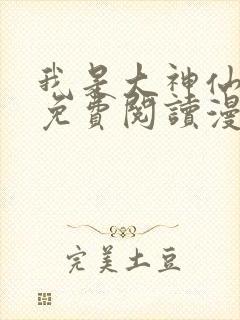 我是大神仙
免費閱讀漫
完美土豆